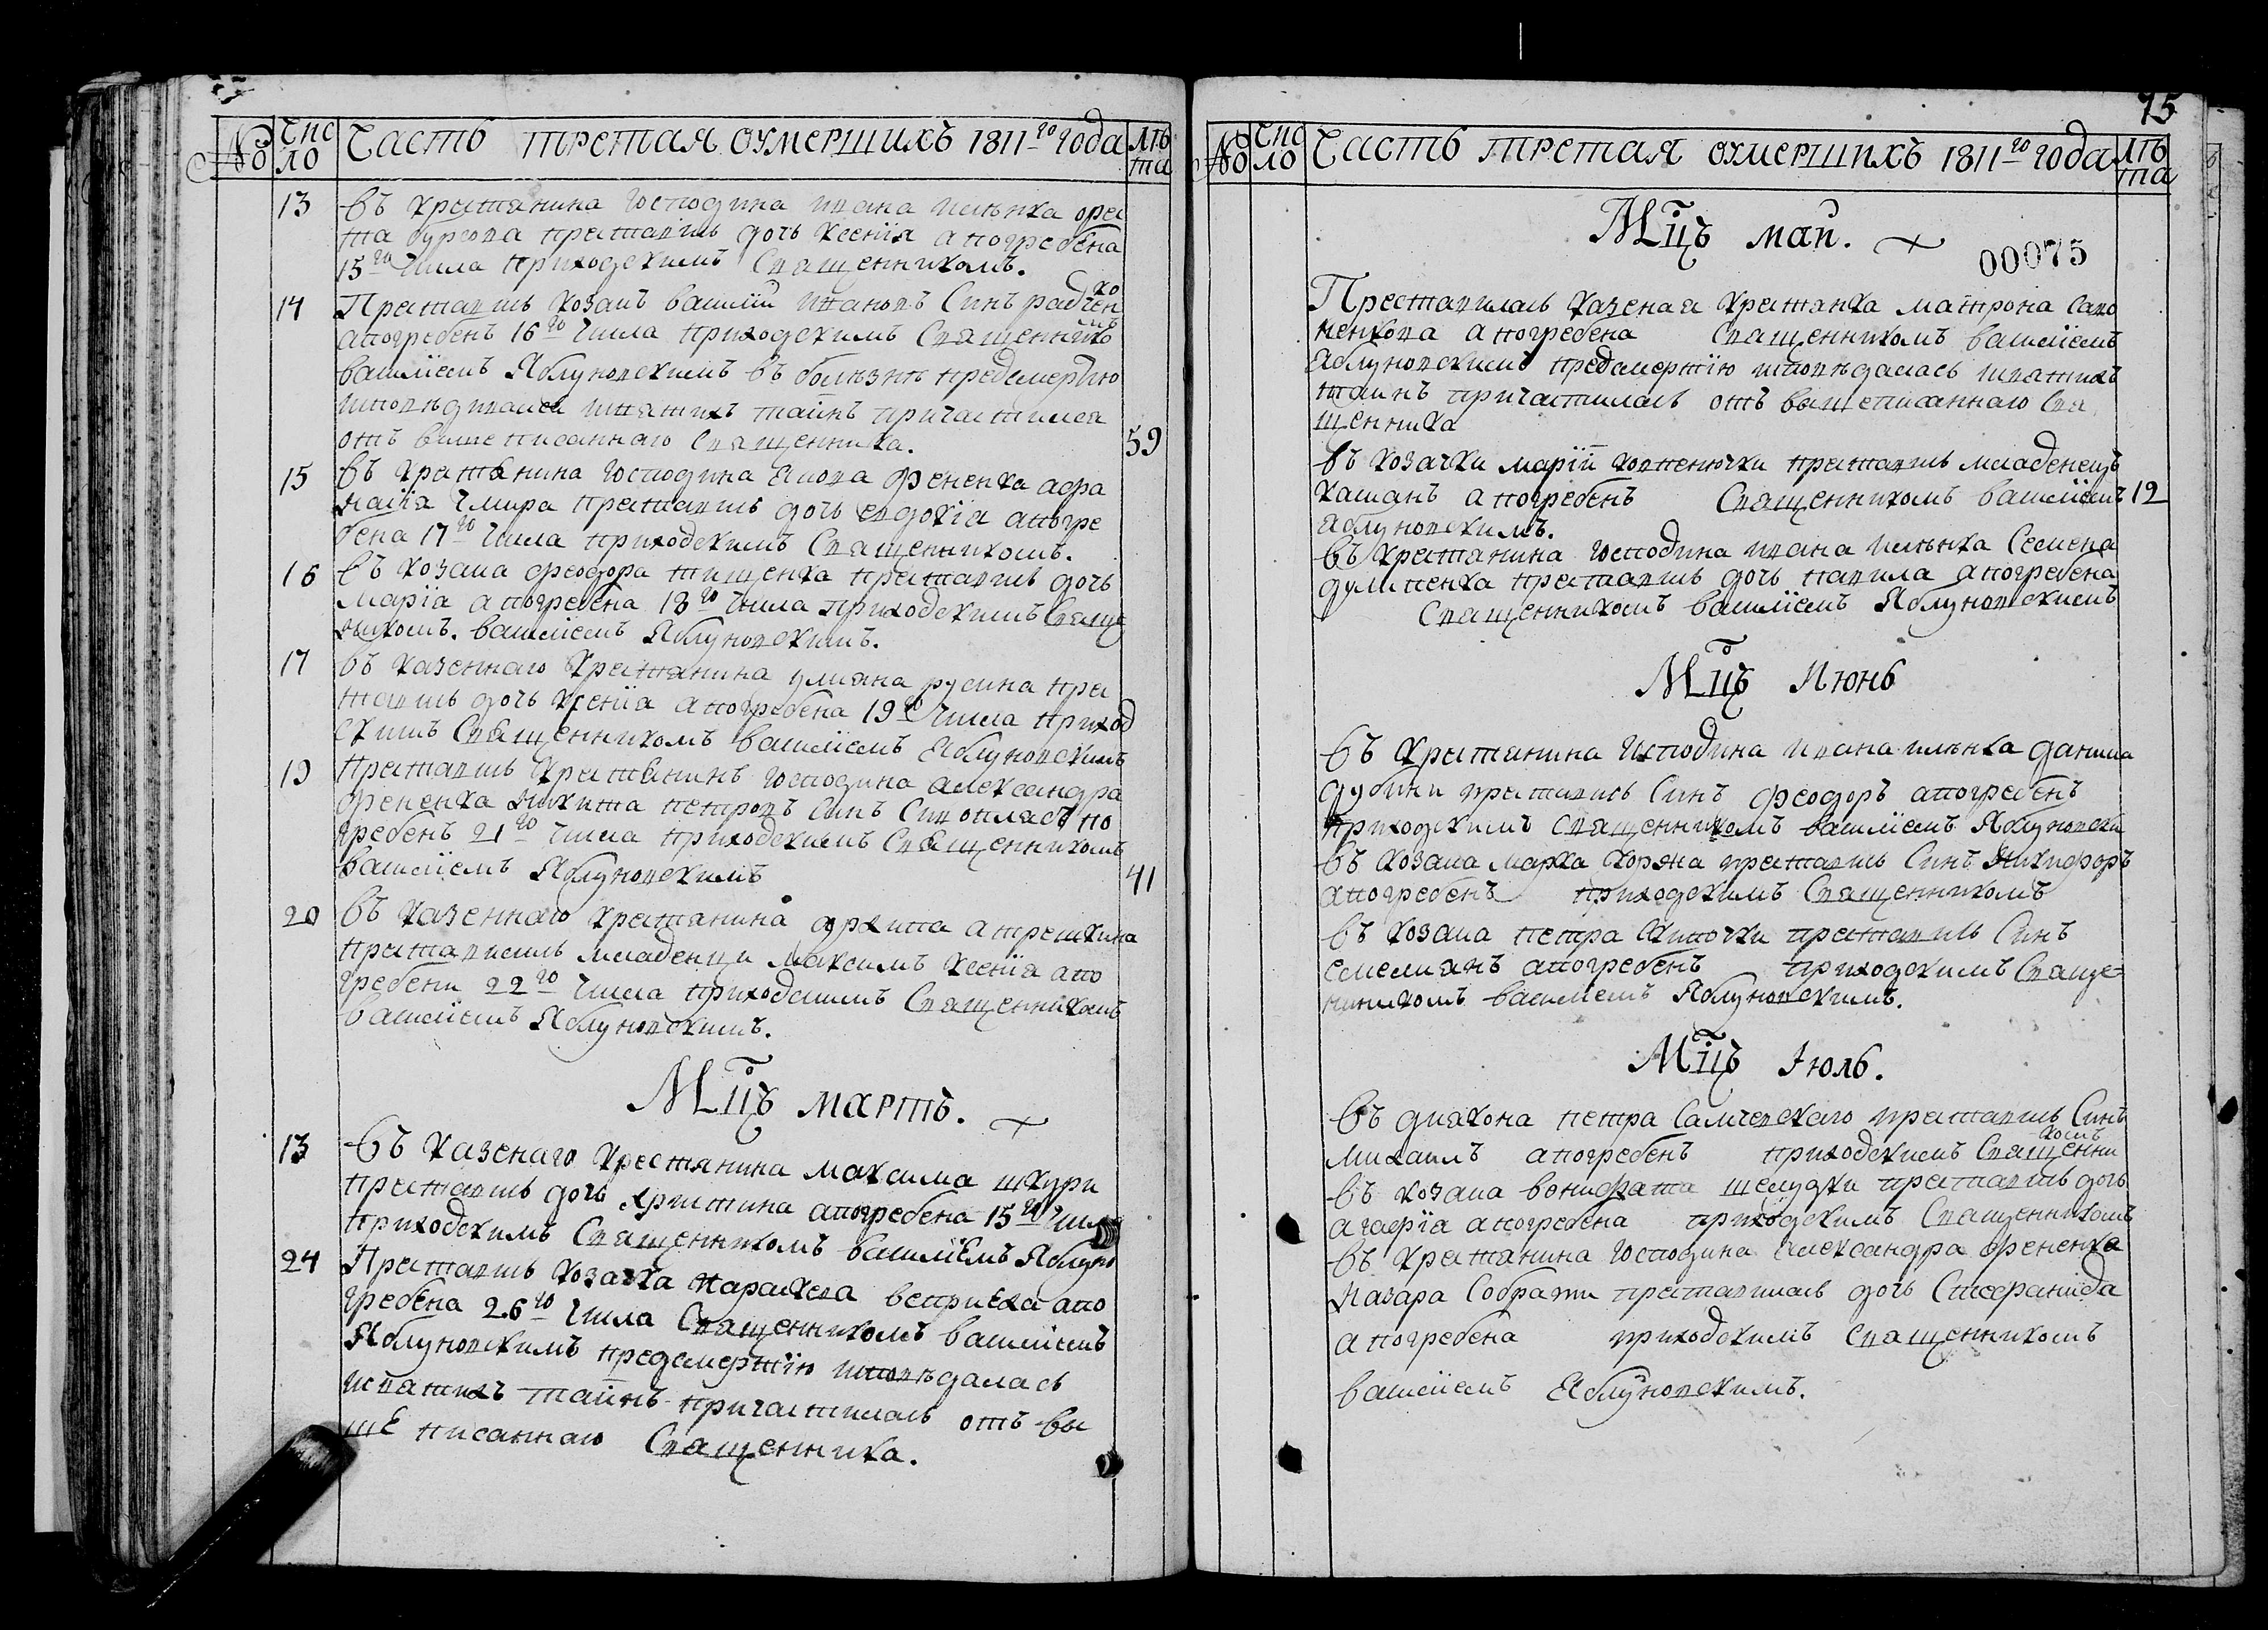 № Число Часть третая оумершихъ 1811го года лѣта
13 въ крестянина господина ивана илѣнка
преставись дочь ксенїя апогребена
15го числа приходскимъ Священникомъ.
14 Преставись козакъ василїй ивановъ Синъ радченко
апогребенъ 16го числа приходскимъ Священникомъ
василїемъ Яблуновскимъ въ болѣзнѣ предсмертїю
исповѣдивался исвятихъ таинъ причастился
отъ вишеписаннаго Священника. 59
15 въ крестянина господина фененка
преставись дочь евдокїа апогре
бена 17го числа приходскимъ Священникомъ.
16 въ козака феодора тищенка преставись дочь
марїа апогребена 18го числа приходскимъ Свяще
никомъ. василїемъ Яблуновскимъ.
17 въ казеннаго крестянина улияна русина пре
ставись дочь ксенїа апогребена 19го числа приход
скимъ Священникомъ василїемъ Яблуновскимъ
19 преставись крестянинъ господина александра
фененка никита петровъ синъ апо
гребенъ 21го числа приходскимъ Священникомъ
василїемъ Яблуновскимъ 41
20 въ казеннаго крестянина архипа
преставились младенци максимъ ксенїя апо
гребени 22го числа приходскимъ Священникомъ
василїемъ Яблуновскимъ.
Мцъ мартъ.
13 въ казенаго крестянина максима шкури
преставись дочь христина апогребена 15го числа
приходскимъ Священникомъ василїемъ Яблуно
24 Преставись козачка параскева апо
гребена 26го числа Священникомъ василїемъ
Яблуновскимъ предсмертїю исповѣдалась
исвятихъ таинъ причастилась отъ ви
ше писаннаго Священника.
75
№ Число Часть третая оумершихъ 1811го года лѣта
Мцъ май.
00075
Преставилась казеная крестянка матрона
апогребена Священникомъ василїемъ
Яблуновскимъ предсмертїю исповѣдалась исвятихъ
таинъ причастилась отъ вышеписаннаго Свя
щенника
въ козачки марїй преставись младенецъ
касянъ апогребенъ Священникомъ василїемъ 12
Яблуновскимъ.
въ крестянина господина ивана илѣнка Семена
преставись дочь павила апогребена
Священникомъ василїемъ Яблуновскимъ
Мцъ Июнь
въ крестянина господина ивана илѣнка данила
дубини преставись Синъ феодоръ апогребенъ
приходскимъ священникомъ василїемъ Яблуновски
въ козака марка коржа преставись Синъ никифоръ
апогребенъ приходскимъ Священникомъ
въ козака петра преставись Синъ
емелиянъ апогребенъ приходскимъ Свяще-
нникомъ василїемъ Яблуновскимъ.
Мцъ Іюль.
въ диякона петра Самчевскаго преставись Синъ
михаилъ апогребенъ приходскимъ Священникомъ
въ козака вонифата шелудки преставись дочь
агафїа апогребена приходскимъ Священникомъ
въ крестянина господина александра фененка
назара преставилась дочь Стефанїда
апогребена приходскимъ Священникомъ
василїемъ Яблуновскимъ.